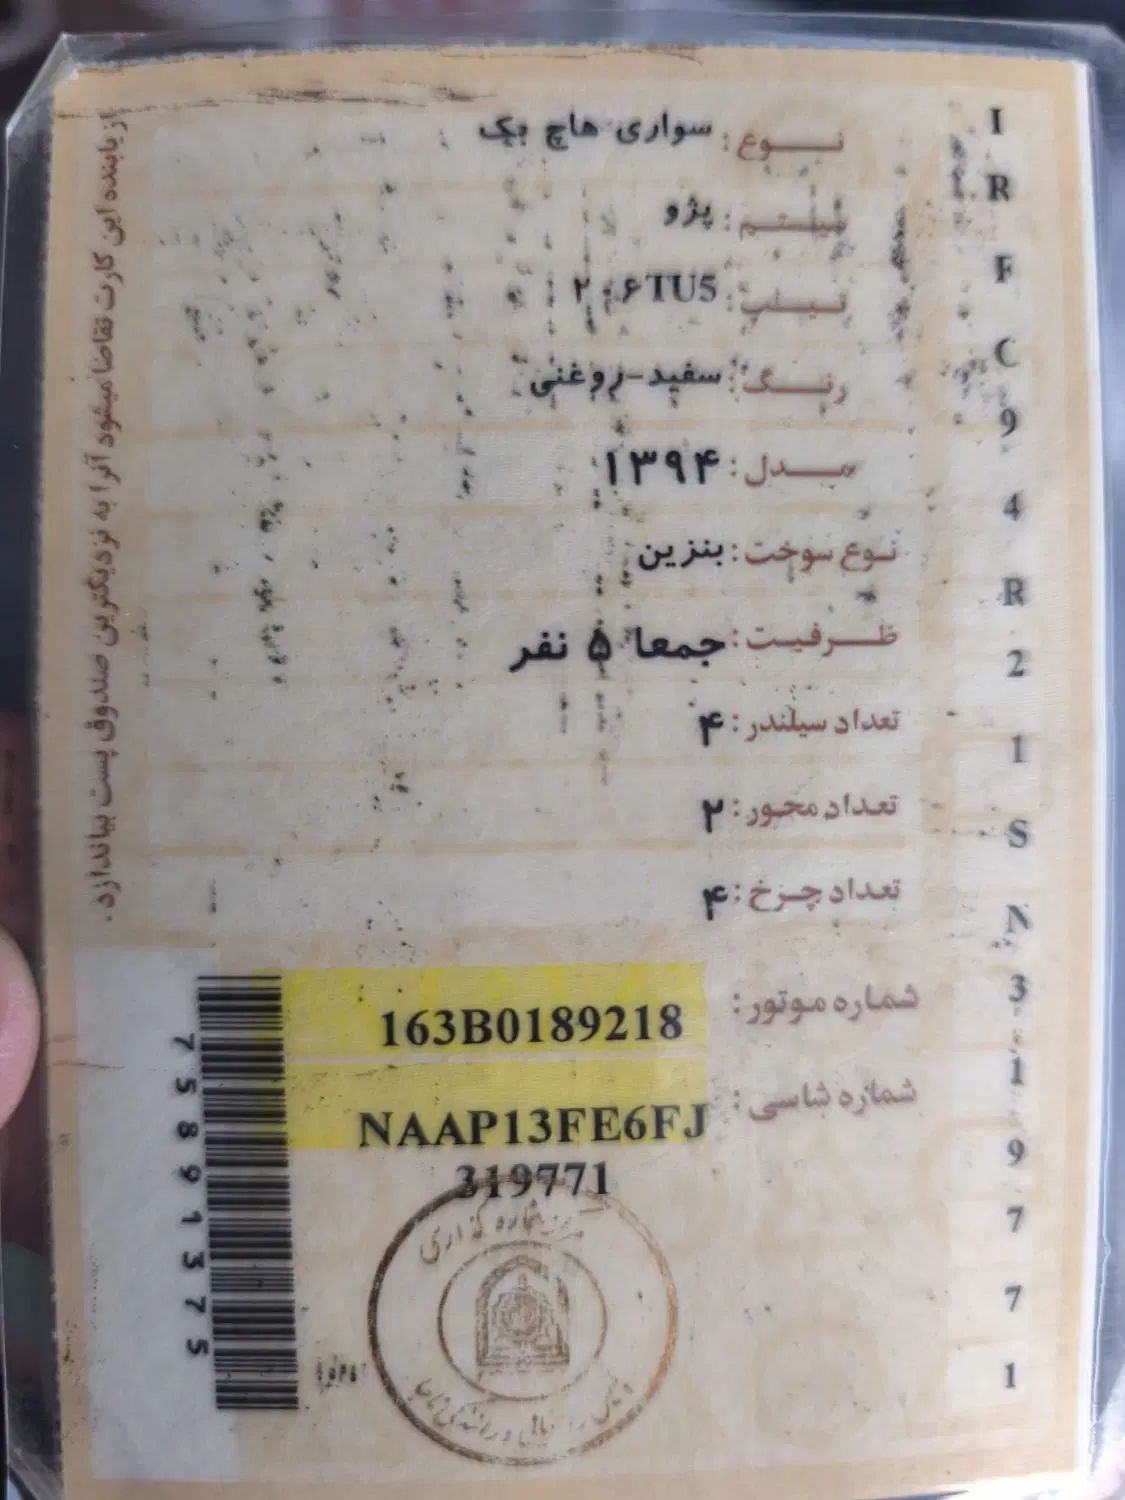 نوع: سواری هاچ بک
سیستم: پژو
تیپ: ۲۰۶TU5
رنگ: سفید-روغنی
مدل: ۱۳۹۴
نوع سوخت: بنزین
ظرفیت: جمعا ۵ نفر
تعداد سیلندر: ۴
تعداد محور: ۲
تعداد چرخ: ۴
شماره موتور: 163B0189218
شماره شاسی: NAAP13FE6FJ
319771
IRFC94R21SN319771
از یابنده این کارت تقاضا میشود آنرا به نزدیکترین صندوق پست بیاندازد.
75891375
شماره گذاری